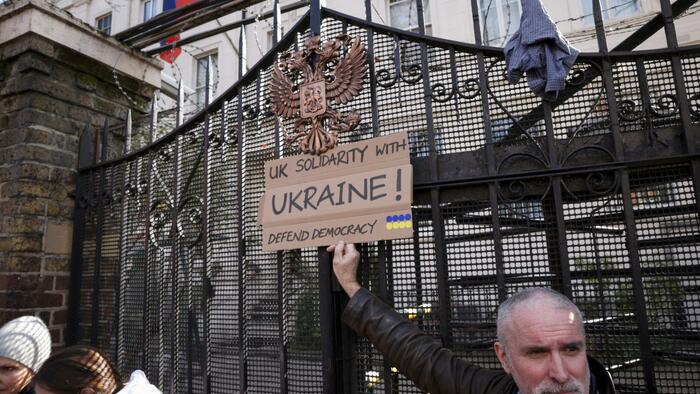 UK SOLIDARITY WITH
UKRAINE!
DEFEND DEMOCRACY